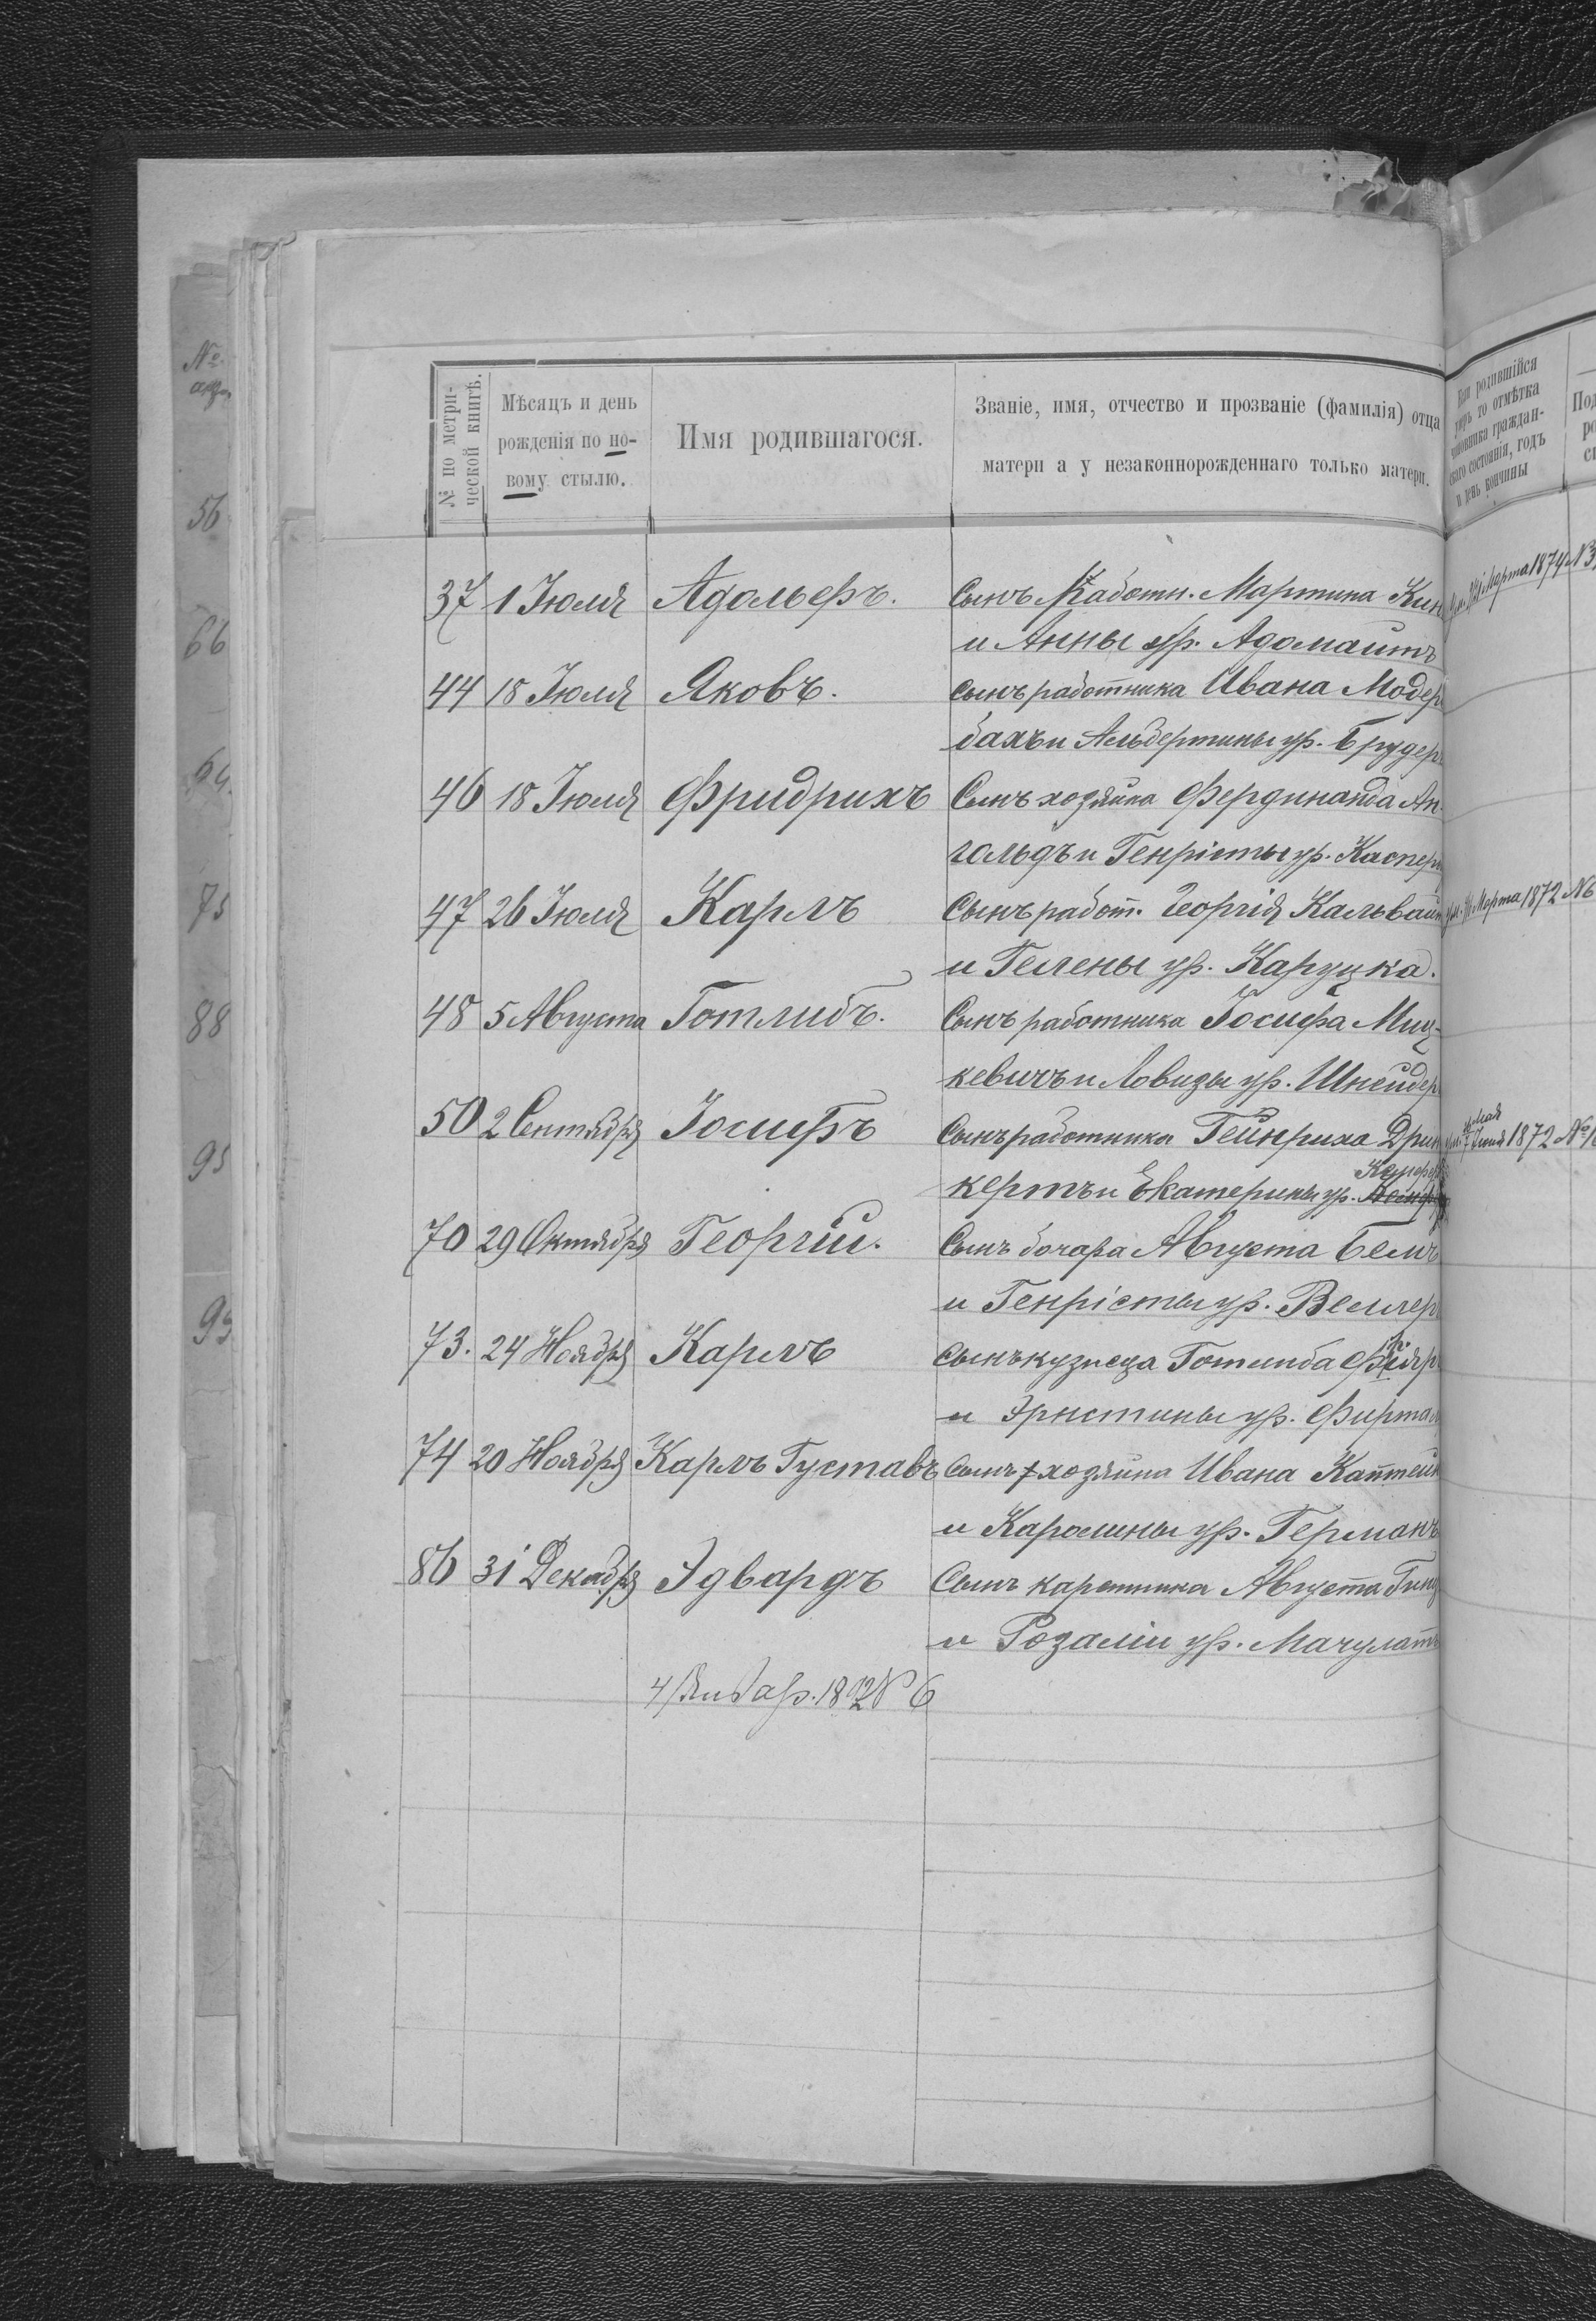 № по метри-
ческой книгѣ.
Мѣсяцъ и день
рожденія по но-
вому стылю.
Имя родившагося.
Званіе, имя, отчество и прозваніе (фамилія) отца
матери а у незаконнорожденнаго только матери.
родившійся
то отмѣтка
граждан-
состоянія, годъ
и день кончины
37 1 Іюля Адольфъ. Сынъ Работн. Мартина Кин
Марта 1874 № 3
и Анны ур. Адомаитъ
44 18 Іюля Яковъ. Сынъ работника Ивана Модер
бахъ и Альбертины ур. Брудер
46 18 Іюля Фридрихъ Сынъ хозяина Фердинанда Ан
гольдъ и Генріеты ур. Каспер
47 26 Іюля Карлъ Сынъ работ. Георгія Кальваи
Марта 1872 № 6
и Гелены ур. Каруцка.
48 5 Августа Готлибъ. Сынъ работника Іосифа Миц-
кевичъ и Ловизы ур. Шнейдер
50 2 Сентября Іосифъ Сынъ работника Гейнриха Дрин
1872 №
кертъ и Екатерины ур.
70 29 Октября Георгій. Сынъ бочара Августа Бемъ
и Генріеты ур. Веллер
73. 24 Ноября Карлъ Сынъ кузнеца Готлиба
и Эрнстины ур. Фирта
74 20 Ноября Карлъ Густавъ Сынъ хозяина Ивана Каптейн
и Каролины ур. Германъ
86 31 Декабря Эдвардъ Сынъ каретника Августа Гинц
и Розаліи ур. Мачулатъ
4 Январ. 1872 № 6
№
56
66
64.
75
88
95
93